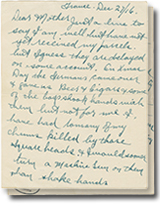 France. Dec 27/16.
Dear Mother Just a line to
say I am well but have not
yet received my parcels
but I guess they are delayed
on some account. On Xmas
Day the Germans came over
& gave us Beer & Cigars & some
of the boys shook hands with
them but not for me I
have had too many of my
chums killed by those
square heads & I would sooner
turn a Machine Gun on them
than shake hands